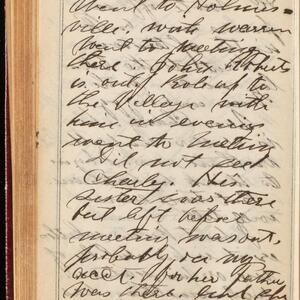 went to Holmes-
ville, with Warren
went to meeting
there. John
is out, Rode up to
the Village with
him in evening
went to Meeting
Did not see
Charley. His
sister was there
but left before
meeting was out,
probably on my
acct. for her father
was there, and